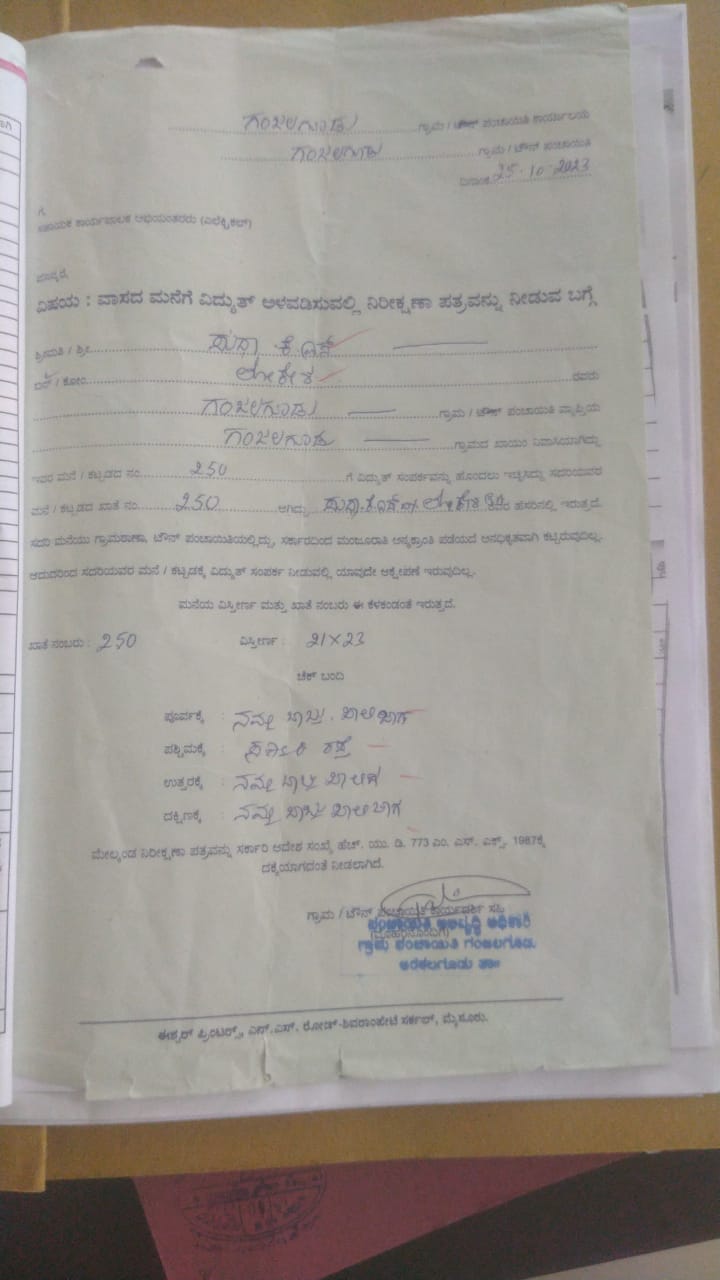 ಗಂಜಲಗೂಡು ಗ್ರಾಮ / ಟೌನ್ ಪಂಚಾಯಿತಿ ಕಾರ್ಯಾಲಯ
ಗಂಜಲಗೂಡು ಗ್ರಾಮ / ಟೌನ್ ಪಂಚಾಯಿತಿ
ದಿನಾಂಕ 25-10-2023
ಗೆ,
ಸಹಾಯಕ ಕಾರ್ಯಪಾಲಕ ಅಭಿಯಂತರರು (ಎಲೆಕ್ಟ್ರಿಕಲ್)
ಮಾನ್ಯರೆ,
ವಿಷಯ : ವಾಸದ ಮನೆಗೆ ವಿದ್ಯುತ್ ಅಳವಡಿಸುವಲ್ಲಿ ನಿರೀಕ್ಷಣಾ ಪತ್ರವನ್ನು ನೀಡುವ ಬಗ್ಗೆ
ಶ್ರೀಮತಿ / ಶ್ರೀ
ಬಿನ್ / ಕೋಂ ಲೋಕೇಶ ರವರು
ಗಂಜಲಗೂಡು ಗ್ರಾಮ / ಟೌನ್ ಪಂಚಾಯಿತಿ ವ್ಯಾಪ್ತಿಯ
ಗಂಜಲಗೂಡು ಗ್ರಾಮದ ಖಾಯಂ ನಿವಾಸಿಯಾಗಿದ್ದು
ಇವರ ಮನೆ / ಕಟ್ಟಡದ ನಂ. 250 ಗೆ ವಿದ್ಯುತ್ ಸಂಪರ್ಕವನ್ನು ಹೊಂದಲು ಇಚ್ಛಿಸಿದ್ದು ಸದರಿಯವರ
ಮನೆ / ಕಟ್ಟಡದ ಖಾತೆ ನಂ. 250 ಆಗಿದ್ದು ಲೋಕೇಶ ರವರ ಹೆಸರಿನಲ್ಲಿ ಇರುತ್ತದೆ.
ಸದರಿ ಮನೆಯು ಗ್ರಾಮಠಾಣಾ, ಟೌನ್ ಪಂಚಾಯಿತಿಯಲ್ಲಿದ್ದು, ಸರ್ಕಾರದಿಂದ ಮಂಜೂರಾತಿ ಅನ್ಯಕ್ರಾಂತಿ ಪಡೆಯದೆ ಅನಧಿಕೃತವಾಗಿ ಕಟ್ಟಿರುವುದಿಲ್ಲ.
ಆದುದರಿಂದ ಸದರಿಯವರ ಮನೆ / ಕಟ್ಟಡಕ್ಕೆ ವಿದ್ಯುತ್ ಸಂಪರ್ಕ ನೀಡುವಲ್ಲಿ ಯಾವುದೇ ಆಕ್ಷೇಪಣೆ ಇರುವುದಿಲ್ಲ.
ಮನೆಯ ವಿಸ್ತೀರ್ಣ ಮತ್ತು ಖಾತೆ ನಂಬರು ಈ ಕೆಳಕಂಡಂತೆ ಇರುತ್ತದೆ.
ಖಾತೆ ನಂಬರು : 250 ವಿಸ್ತೀರ್ಣ : 21×23
ಚೆಕ್ ಬಂದಿ
ಪೂರ್ವಕ್ಕೆ : ನಮ್ಮ ಬಾಬ್ತು ಖಾಲಿ ಜಾಗ
ಪಶ್ಚಿಮಕ್ಕೆ : ರಸ್ತೆ
ಉತ್ತರಕ್ಕೆ : ನಮ್ಮ ಬಾಬ್ತು
ದಕ್ಷಿಣಕ್ಕೆ : ನಮ್ಮ ಬಾಬ್ತು ಖಾಲಿ ಜಾಗ
ಮೇಲ್ಕಂಡ ನಿರೀಕ್ಷಣಾ ಪತ್ರವನ್ನು ಸರ್ಕಾರಿ ಆದೇಶ ಸಂಖ್ಯೆ ಹೆಚ್. ಯು. ಡಿ. 773 ಎಂ. ಎನ್. ಎಕ್ಸ್. 1987ಕ್ಕೆ
ದಕ್ಕೆಯಾಗದಂತೆ ನೀಡಲಾಗಿದೆ.
ಗ್ರಾಮ / ಟೌನ್ ಪಂಚಾಯಿತಿ ಕಾರ್ಯದರ್ಶಿ ಸಹಿ
(ಮೊಹರಿನೊಂದಿಗೆ)
ಪಂಚಾಯಿತಿ ಅಭಿವೃದ್ಧಿ ಅಧಿಕಾರಿ
ಗ್ರಾಮ ಪಂಚಾಯಿತಿ ಗಂಜಲಗೂಡು
ಅರಕಲಗೂಡು ತಾ॥
ಈಶ್ವರ್ ಪ್ರಿಂಟರ್ಸ್, ಎನ್.ಎಸ್. ರೋಡ್-ಶಿವರಾಂಪೇಟೆ ಸರ್ಕಲ್, ಮೈಸೂರು.